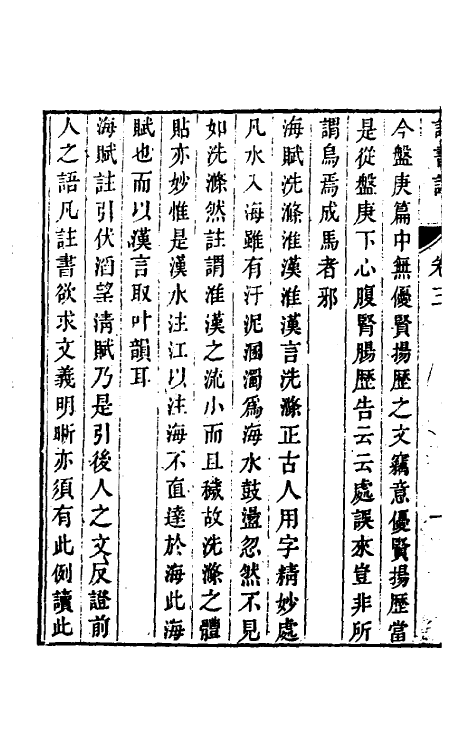 讀書記
卷三
今盤庚篇中無優賢揚歷之文竊意優賢揚歷當
是從盤庚下心腹腎腸歷告云云處誤來豈非所
謂烏焉成馬者邪
海賦洗滌淮漢淮漢言洗滌正古人用字精妙處
凡水入海雖有汙泥溷濁爲海水鼓盪忽然不見
如洗滌然註謂淮漢之流小而且穢故洗滌之體
貼亦妙惟是漢水注江以注海不直達於海此海
賦也而以漢言取叶韻耳
海賦註引伏滔望清賦乃是引後人之文反證前
人之語凡註書欲求文義明晰亦須有此例讀此